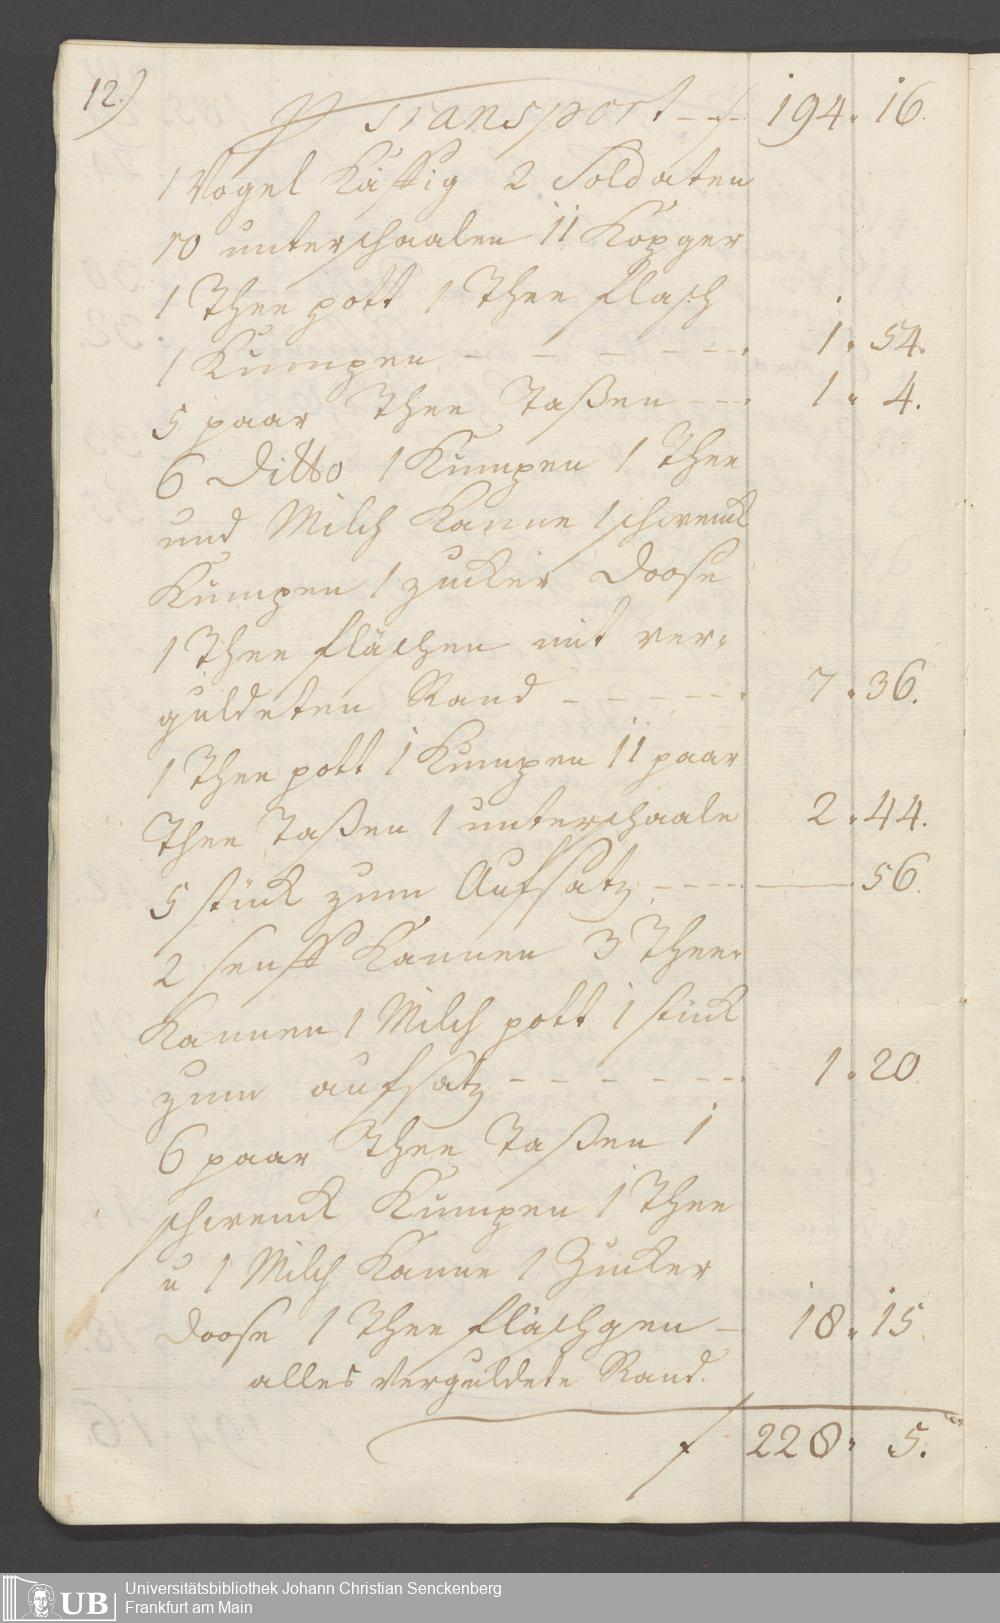 12.)
P Transport f 194. 16.
1 Vogel Käffig 2 Soldaten
10 unterschaalen 11 Kopger
1 Theepott 1 Thee flasch
1 Kumpen - - - - - 1. 54.
5 paar Thee Taßen - - - 1. 4.
6 Ditto 1 Kumpen 1 Thee
und Milch Kanne 1 schwenck
Kumpen 1 zucker Doose
1 Thee fläschen mit ver-
guldeten Rand - - - - 7. 36.
1 Theepott 1 Kumpen 11 paar
Thee Taßen 1 unterschaale 2. 44.
5 stück zum Aufsatz - - - 56.
2 senff Kannen 3 Thee-
Kannen 1 Milch pott 1 stück
zum aufsatz - - - - - 1. 20.
6 paar Thee Taßen 1
schwenck Kumpen 1 Thee
u 1 Milch Kanne 1 Zucker
Doose 1 Thee fläschgen - 18. 15.
alles verguldete Rand.
f 228. 5.
UB
Universitätsbibliothek Johann Christian Senckenberg
Frankfurt am Main